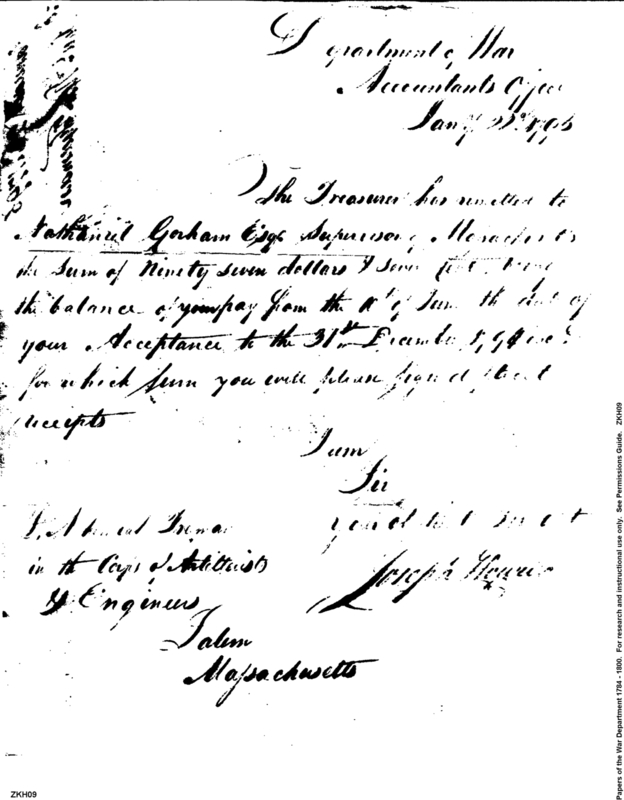 Department of War
Accountants Office
Jany 22d 1795
The Treasurer has remitted to
Nathaniel Gorham Esqr Supervisor of Massachusetts
the Sum of Ninety seven dollars & seven being
the balance of your pay from the of June the date of
your Acceptance to the 31st December 1794
for which sum you will please sign
receipts
I am
Sir
your obt Servt
Joseph Howell
in the Corps of Artillerists
& Engineers
Salem
Massachusetts
Papers of the War Department 1784 - 1800. For research and instructional use only. See Permissions Guide. ZKH09
ZKH09